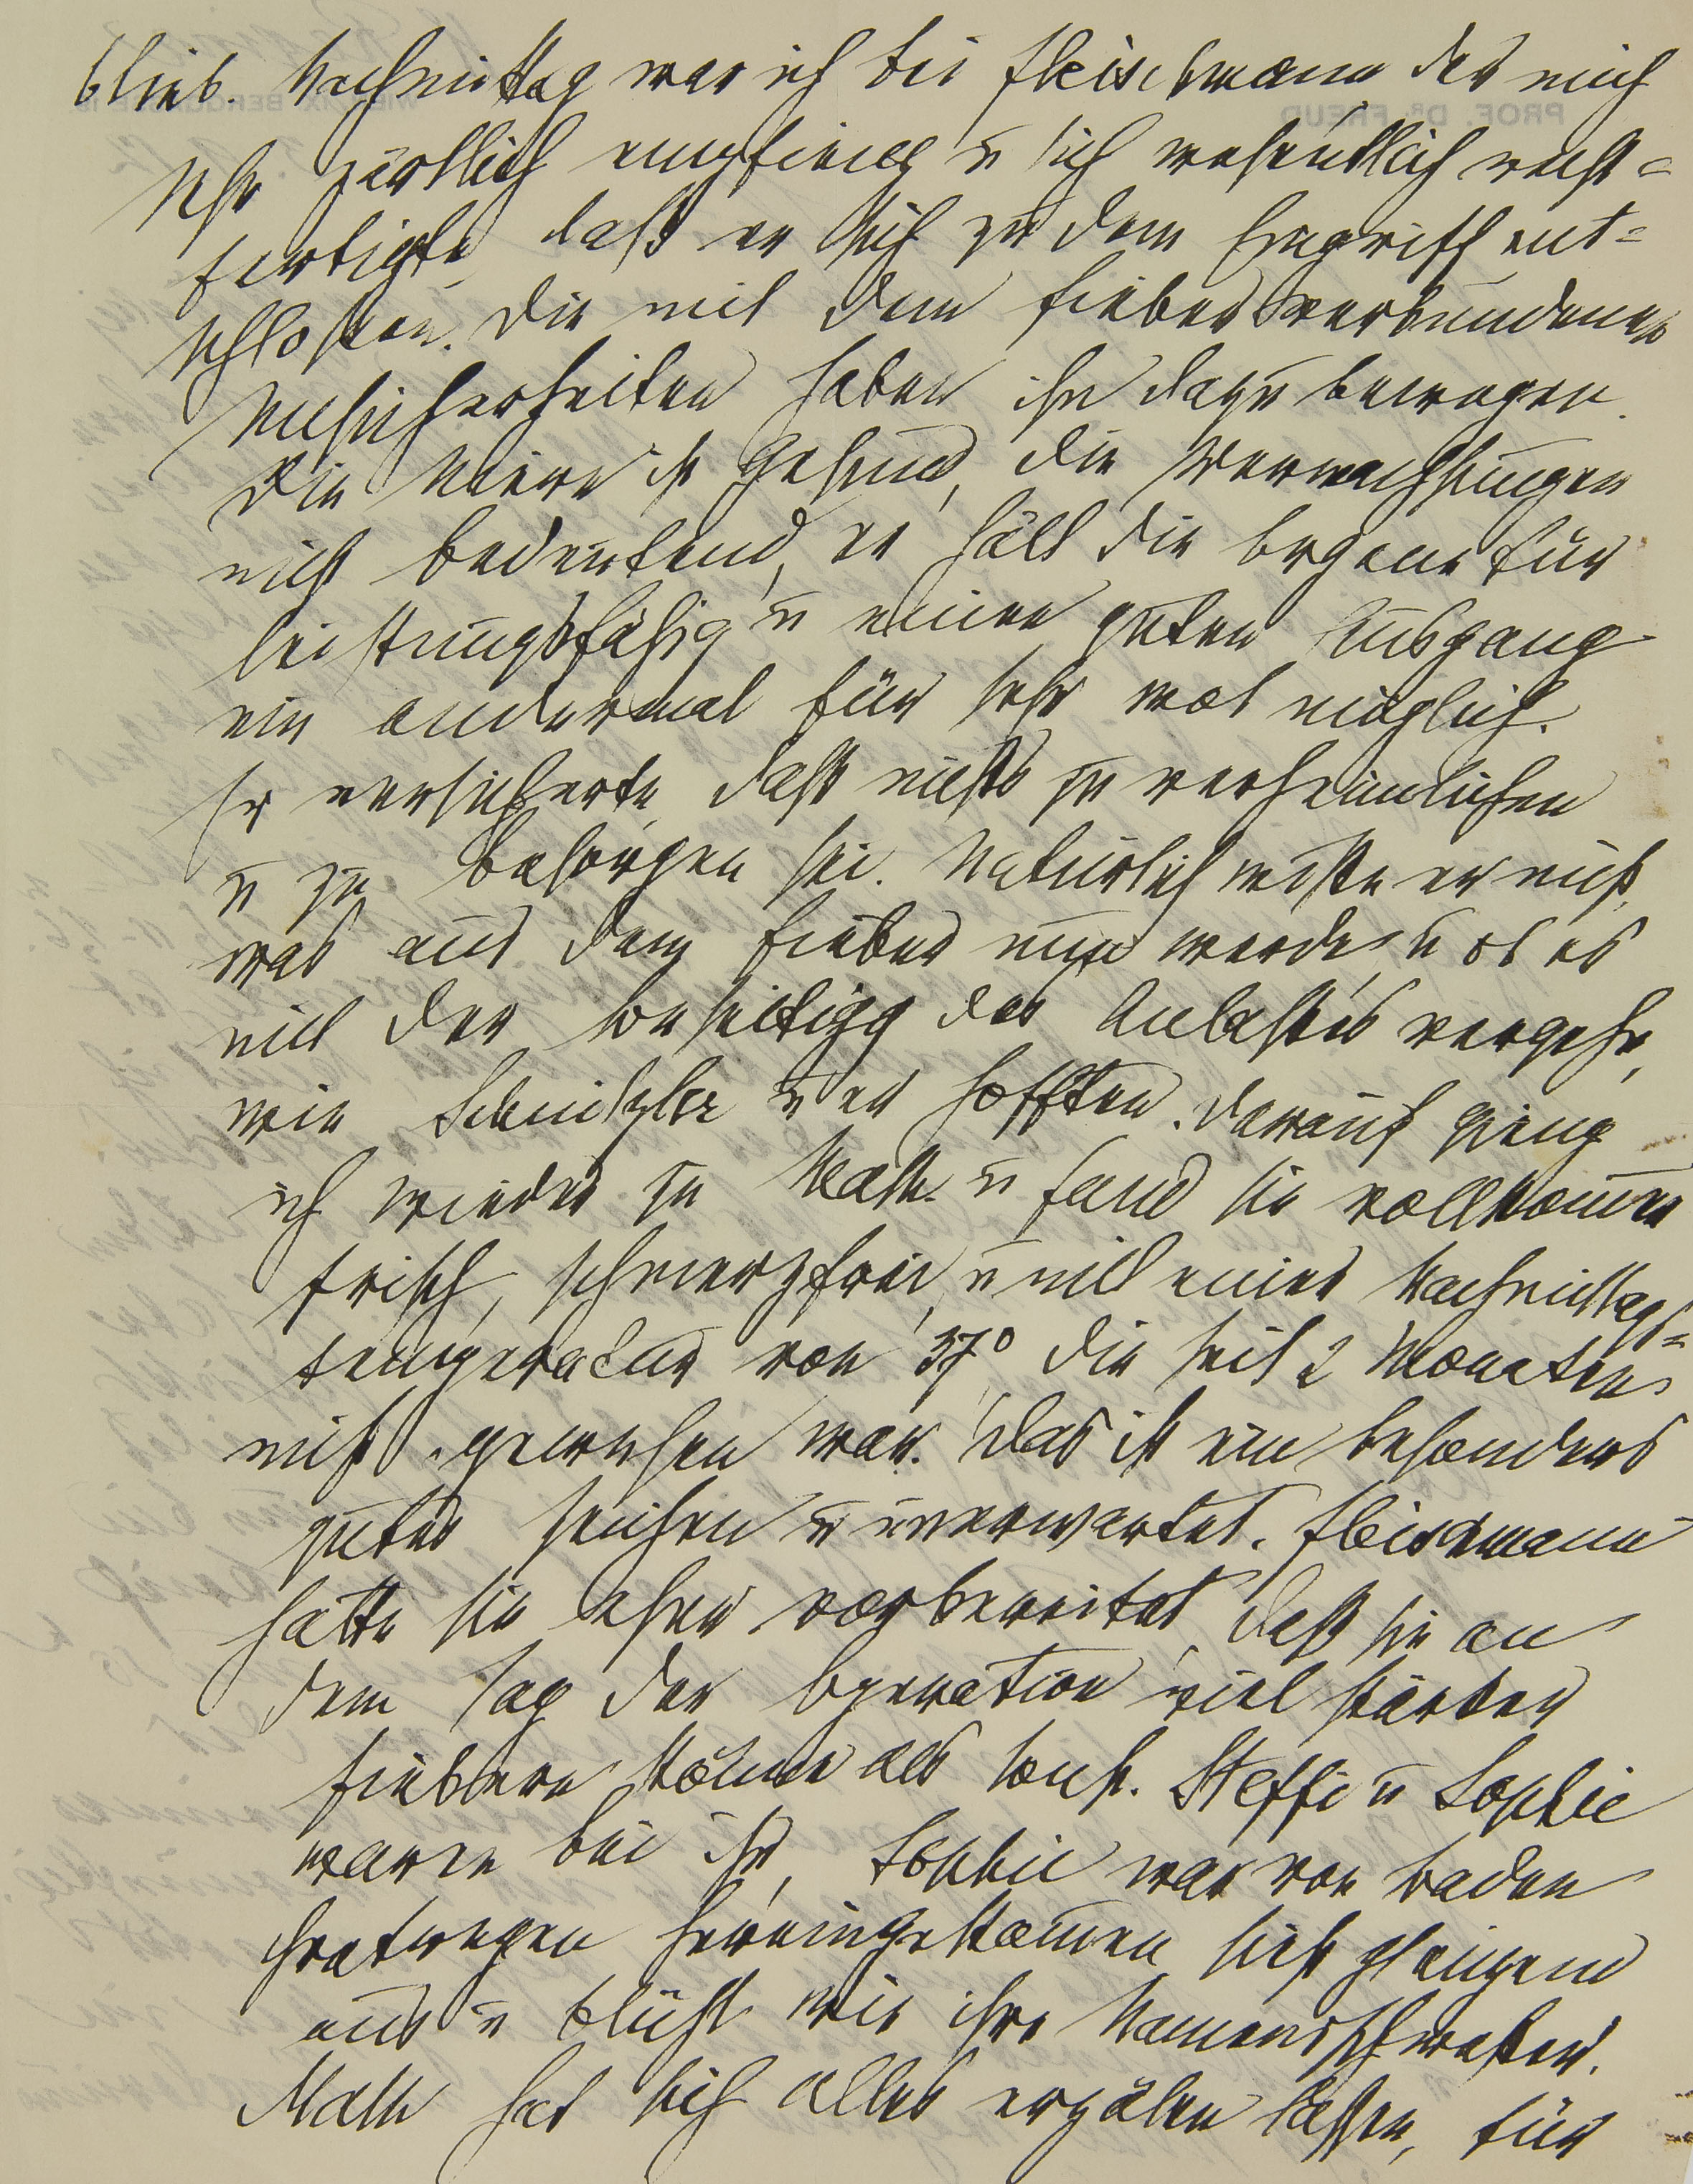 blieb. Nachmittag war ich bei Fleischmann der mich
sehr zärtlich empfieng u sich wesentlich recht=
fertigte, daß er sich zu dem Eingriff ent=
schlossen. Die mit dem Fieber verbundenen
Unsicherheiten haben ihn dazu bewogen.
Die Niere ist gesund, die Verwachsungen
nicht bedeutend, er hält die Organe für
leistungsfähig u einen guten Ausgang
ein andermal für sehr wol möglich.
Er versicherte, daß nichts zu verheimlichen
u zu besorgen sei. Natürlich wisse er nicht,
was aus dem Fieber nun werde, u ob es
mit der Beseitigg des Anlaßes vergehe,
wie Schnitzler u er hofften. Darauf gieng
ich wieder zu Math. u fand sie vollkomen
frisch, schmerzfrei, u mit einer Nachmittags=
temperatur von 37° die seit 2 Monaten
nicht gewesen war. Das ist ein besonders
gutes Zeichen u unerwartet. Fleischmann
hatte sie eher vorbereitet, daß sie an
dem Tag der Operation viel stärker
fiebern könne als sonst. Steffi u Sophie
waren bei ihr, Sophie war von Baden
hereingekomen, sieht glänzend
aus u blüht wie ihre Namensschwester.
Math hat sich alles erzälen lassen, für